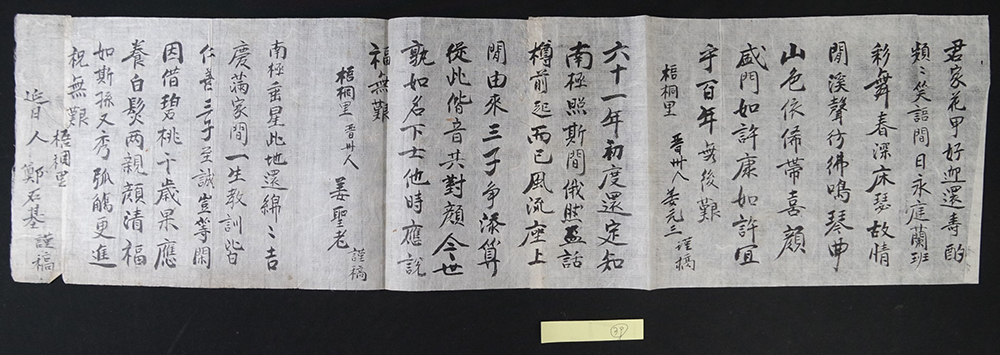 君家花甲好迎還壽酌
頻〻笑語間日永庭蘭班
彩舞春深床瑟故情
閒溪聲彷彿鳴琴曲
山色依俙帶喜顔
盛門如許康如許宜
宇百年無後艱
梧桐里 晋州人 姜元三 謹稿
六十一年初度還定知
南極照斯間俄照盃話
樽前起而已風流座上
閒由來三子爭添算
從此偕音共對顔今世
孰如名下士他時應說
福無艱
梧桐里 晋州人 姜聖老 謹稿
南極壽星此地還綿〻吉
慶滿家間一生教訓皆
仁善三子至誠豈等閑
因借碧桃千歲果應
養白髮兩親顔清福
如斯孫又秀弧觴更進
祝無艱
梧桐里
延日人 鄭石基 謹稿
39